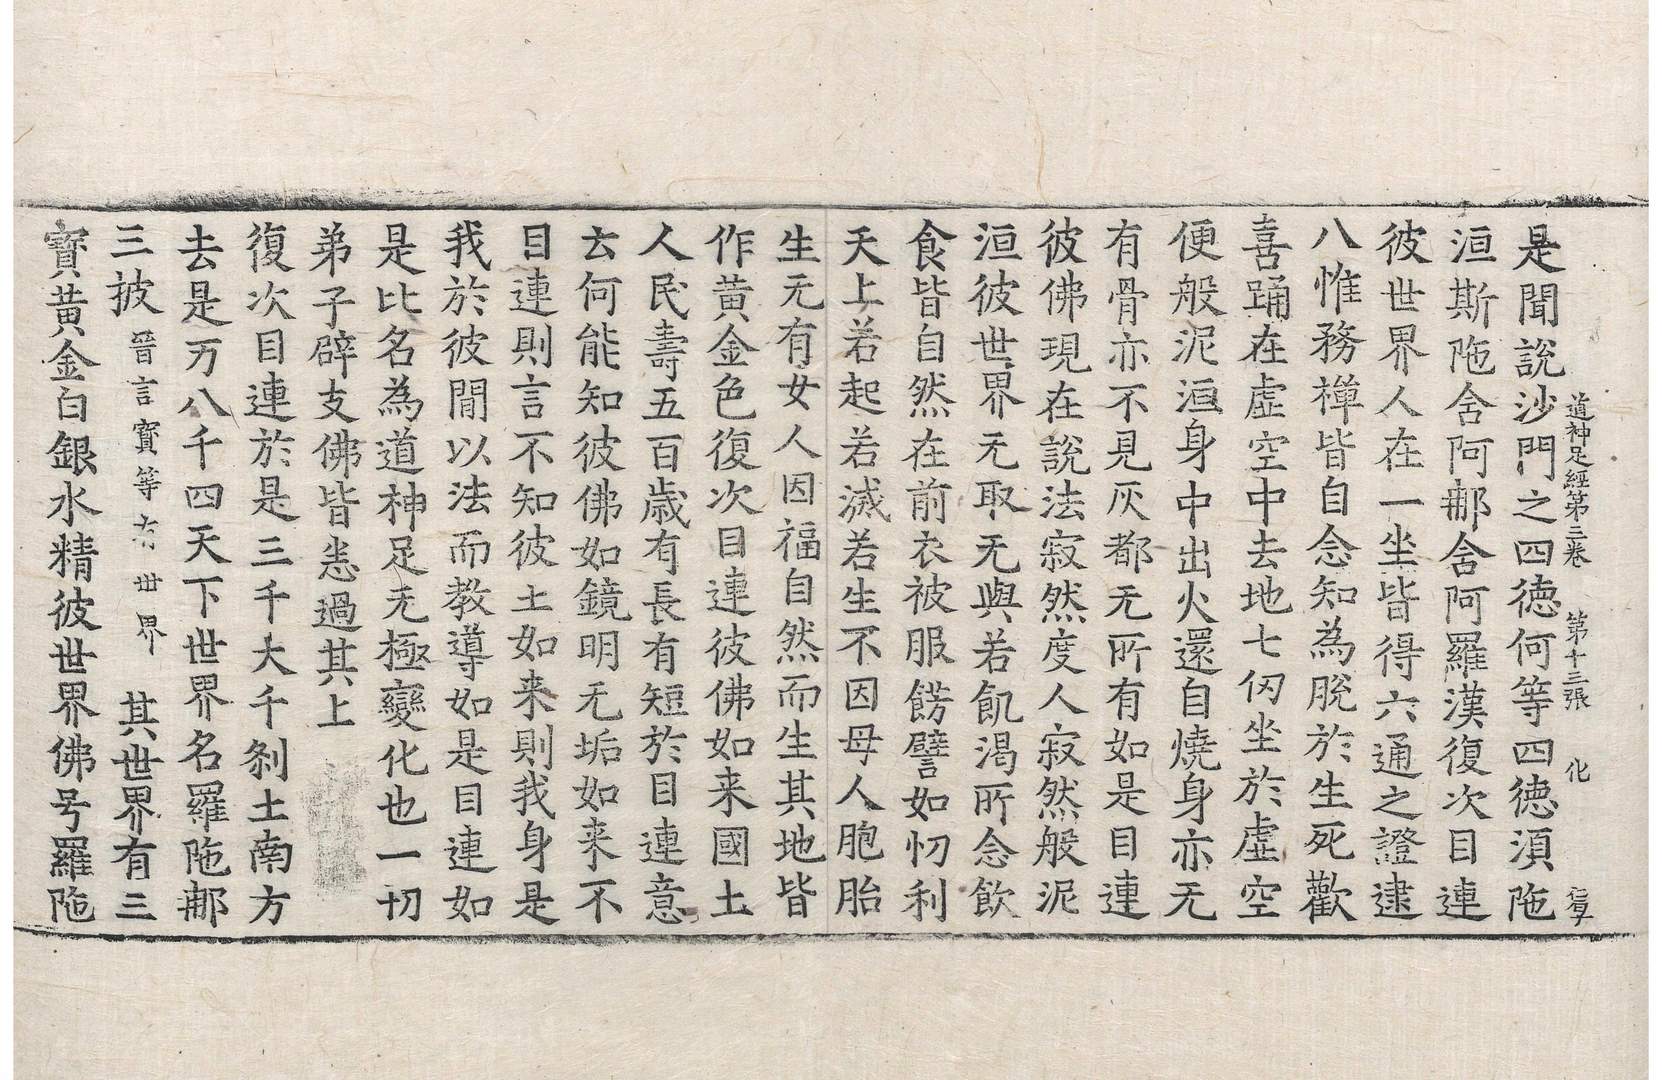 道神足經第三卷 第十三張 化
是聞說沙門之四德何等四德須陁
洹斯陁含阿𨚗含阿羅漢復次目連
彼世界人在一坐皆得六通之證逮
八惟務禪皆自念知為脫於生死歡
喜踊在虛空中去地七仞坐於虛空
便般泥洹身中出火還自燒身亦无
有骨亦不見灰都无所有如是目連
彼佛現在說法寂然度人寂然般泥
洹彼世界无取无與若飢渴所念飲
食皆自然在前衣被服餝譬如忉利
天上若起若滅若生不因母人胞胎
生无有女人因福自然而生其地皆
作黃金色復次目連彼佛如来國土
人民壽五百歲有長有短於目連意
云何能知彼佛如鏡明无垢如来不
目連則言不知彼土如来則我身是
我於彼閒以法而教導如是目連如
是比名為道神足无極變化也一切
弟子辟支佛皆悉過其上
復次目連於是三千大千剎土南方
去是万八千四天下世界名羅陁𨚗
三披晉言寶等六世界其世界有三
寶黃金白銀水精彼世界佛号羅陁